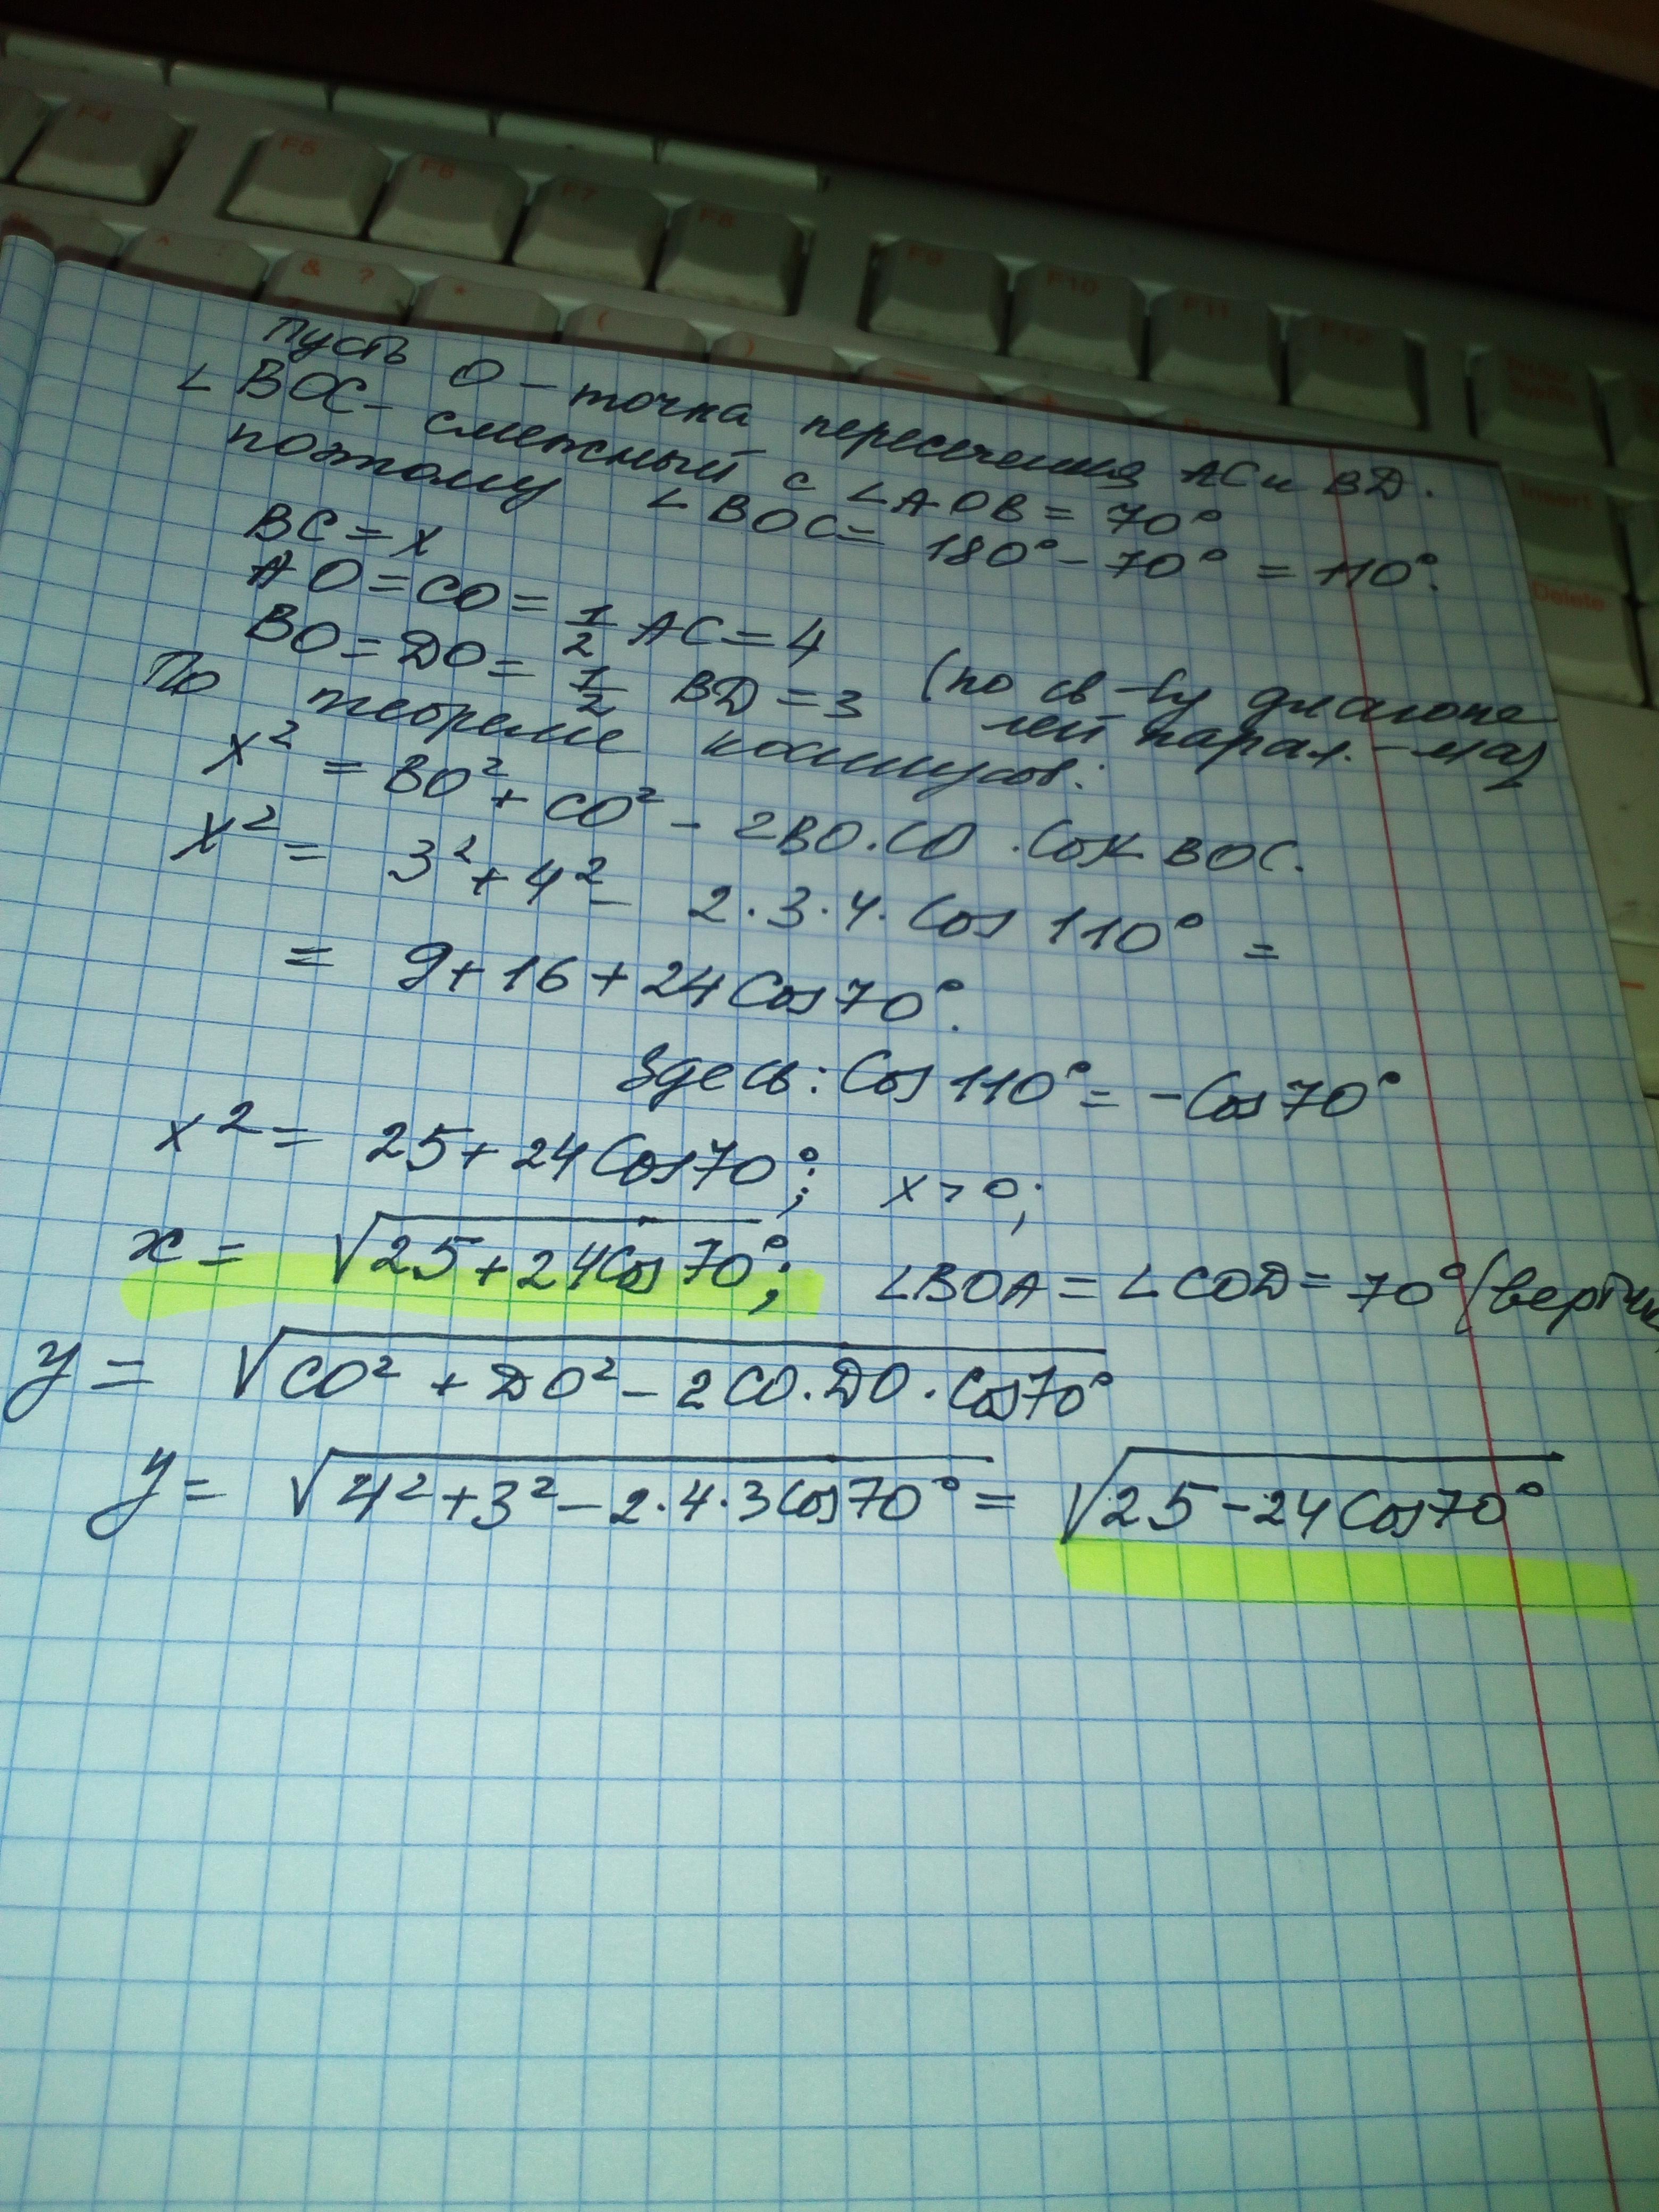 F4 F5 F6 F7 F8 F9 F10 F11 F12
^ & ? * ( ) — +
Insert
Delete
Пусть O – точка пересечения AC и BD.
∠BOC – смежный с ∠AOB = 70°
поэтому ∠BOC = 180° – 70° = 110°.
BC = x
AO = CO = 1/2 AC = 4
BO = DO = 1/2 BD = 3 (по св-ву диагоналей парал.-ма)
По теореме косинусов:
x² = BO² + CO² – 2BO·CO·Cos∠BOC.
x² = 3² + 4² – 2·3·4·Cos 110° =
= 9 + 16 + 24 Cos 70°.
Здесь: Cos 110° = –Cos 70°
x² = 25 + 24 Cos 70°; x > 0;
x = √(25 + 24 Cos 70°); ∠BOA = ∠COD = 70° (вертик
y = √(CO² + DO² – 2CO·DO·Cos 70°)
y = √(4² + 3² – 2·4·3 Cos 70°) = √(25 – 24 Cos 70°)